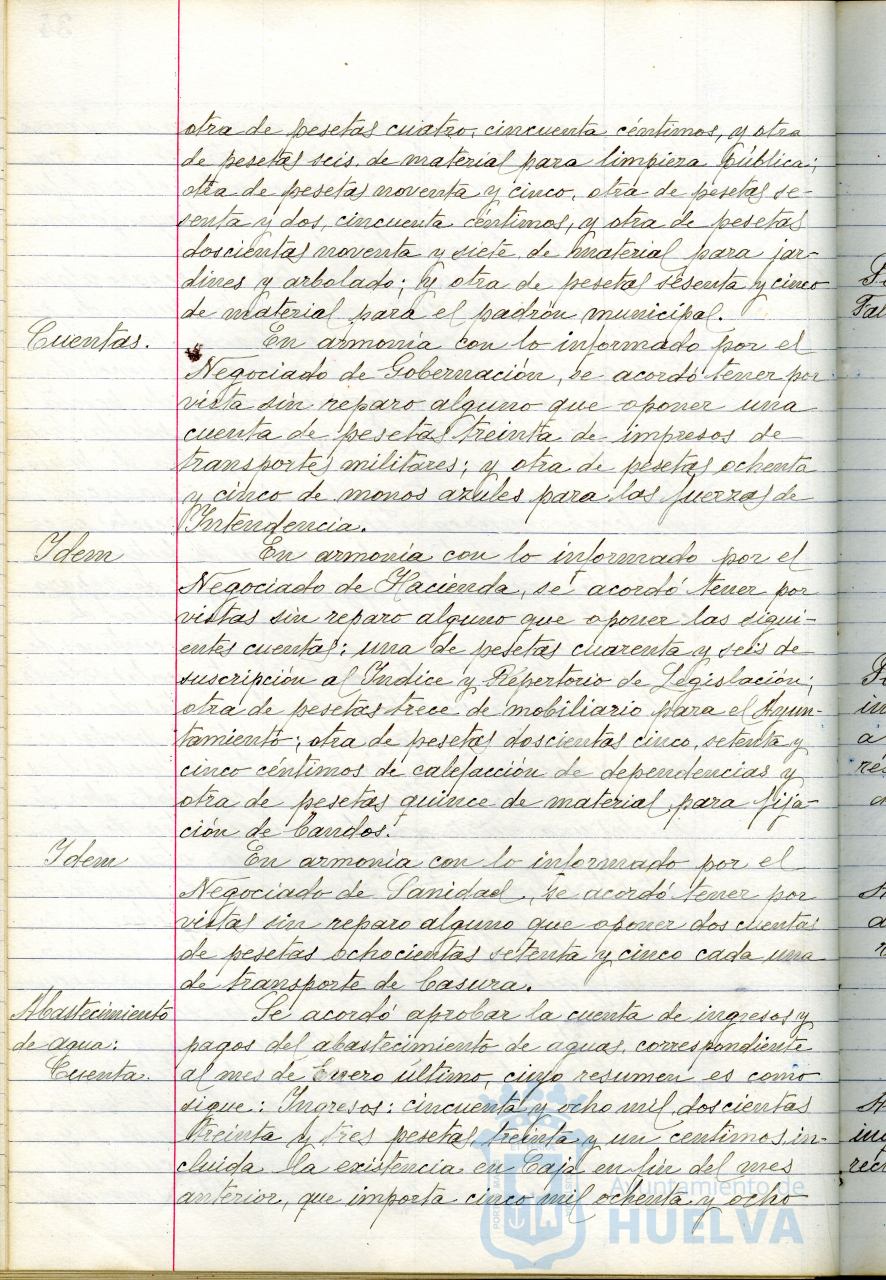 otra de pesetas cuatro, cincuenta céntimos, y otra
de pesetas seis de material para limpieza pública;
otra de pesetas noventa y cinco, otra de pesetas se-
senta y dos, cincuenta céntimos, y otra de pesetas
doscientas noventa y siete de material para jar-
dines y arbolado; y otra de pesetas sesenta y cinco
de material para el padrón municipal.
Cuentas.
En armonía con lo informado por el
Negociado de Gobernación, se acordó tener por
vista sin reparo alguno que oponer una
cuenta de pesetas treinta de impresos de
transportes militares; y otra de pesetas ochenta
y cinco de monos azules para las fuerzas de
Intendencia.
Idem
En armonía con lo informado por el
Negociado de Hacienda, se acordó tener por
vistas sin reparo alguno que oponer las sigui-
entes cuentas: una de pesetas cuarenta y seis de
suscripción al Indice y Repertorio de Legislación;
otra de pesetas trece de mobiliario para el Ayun-
tamiento; otra de pesetas doscientas cinco, setenta y
cinco céntimos de calefacción de dependencias y
otra de pesetas quince de material para fija-
ción de bandos.
Idem
En armonía con lo informado por el
Negociado de Sanidad, se acordó tener por
vistas sin reparo alguno que oponer dos cuentas
de pesetas ochocientas setenta y cinco cada una
de transporte de basura.
Abastecimiento
de agua:
Cuenta.
Se acordó aprobar la cuenta de ingresos y
pagos del abastecimiento de aguas, correspondiente
al mes de Enero último, cuyo resumen es como
sigue: Ingresos: cincuenta y ocho mil doscientas
treinta y tres pesetas treinta y un centimos, in-
cluida la existencia en Caja en fin del mes
anterior, que importa cinco mil ochenta y ocho
Ayuntamiento de
HUELVA